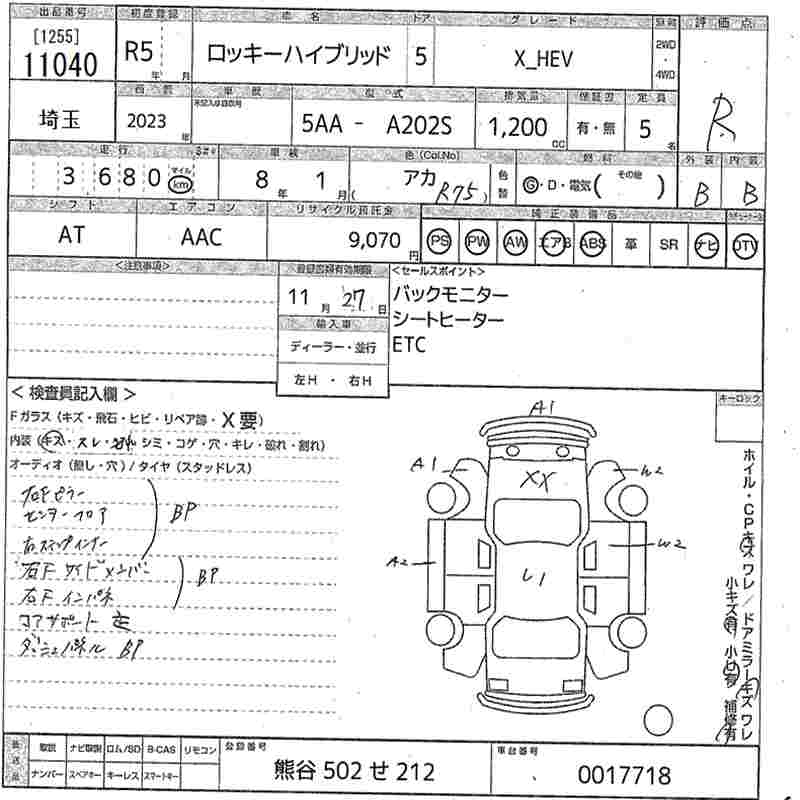 出品番号 初度登録 車名 ドア グレード 駆動 評価点
[1255]
11040 R5 年 月 ロッキーハイブリッド 5 X_HEV 2WD・4WD R
西暦 車歴 型式 排気量 保証書 定員
埼玉 2023 年 5AA - A202S 1,200 cc 有・無 5 名
走行 車検 色(Col.No) 燃料 外装 内装
3680 マイル km 8 年 1 月 アカ (R75) 色替 G・D・電気( その他 ) B B
シフト エアコン リサイクル預託金 純正装備品
AT AAC 9,070 円 PS PW AW エアB ABS 革 SR ナビ DTV
<注意事項> 登録書類有効期限 <セールスポイント>
11 月 27 日 バックモニター
シートヒーター
輸入車
ディーラー・並行 ETC
左H ・ 右H
キーロック
< 検査員記入欄 >
Fガラス (キズ・飛石・ヒビ・リペア跡・X要)
内装 (キズ・スレ・汚れ・シミ・コゲ・穴・キレ・破れ・割れ)
オーディオ (無し・穴) / タイヤ (スタッドレス)
右Fピラー
センターフロア BP
右ステップインナー
右Fサイドメンバー BP
右Fインパネ
コアサポート
ダッシュパネル BP
A1
A1 XX W2
A2 U1 W2
ホイル・CPキズワレ / ドアミラーキズワレ
小キズ有 小凹有 補修有
取説 ナビ取説 ロム/SD B-CAS リモコン 登録番号 車台番号
後送品
ナンバー スペアキー キーレス スマートキー 熊谷 502 せ 212 0017718